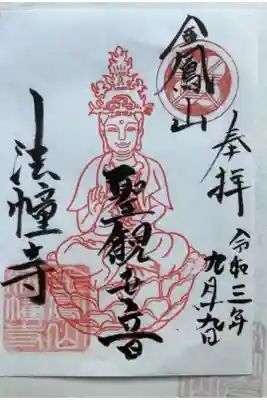 奉拝
令和三年
九月
金鳳山
聖観世音
法幢寺